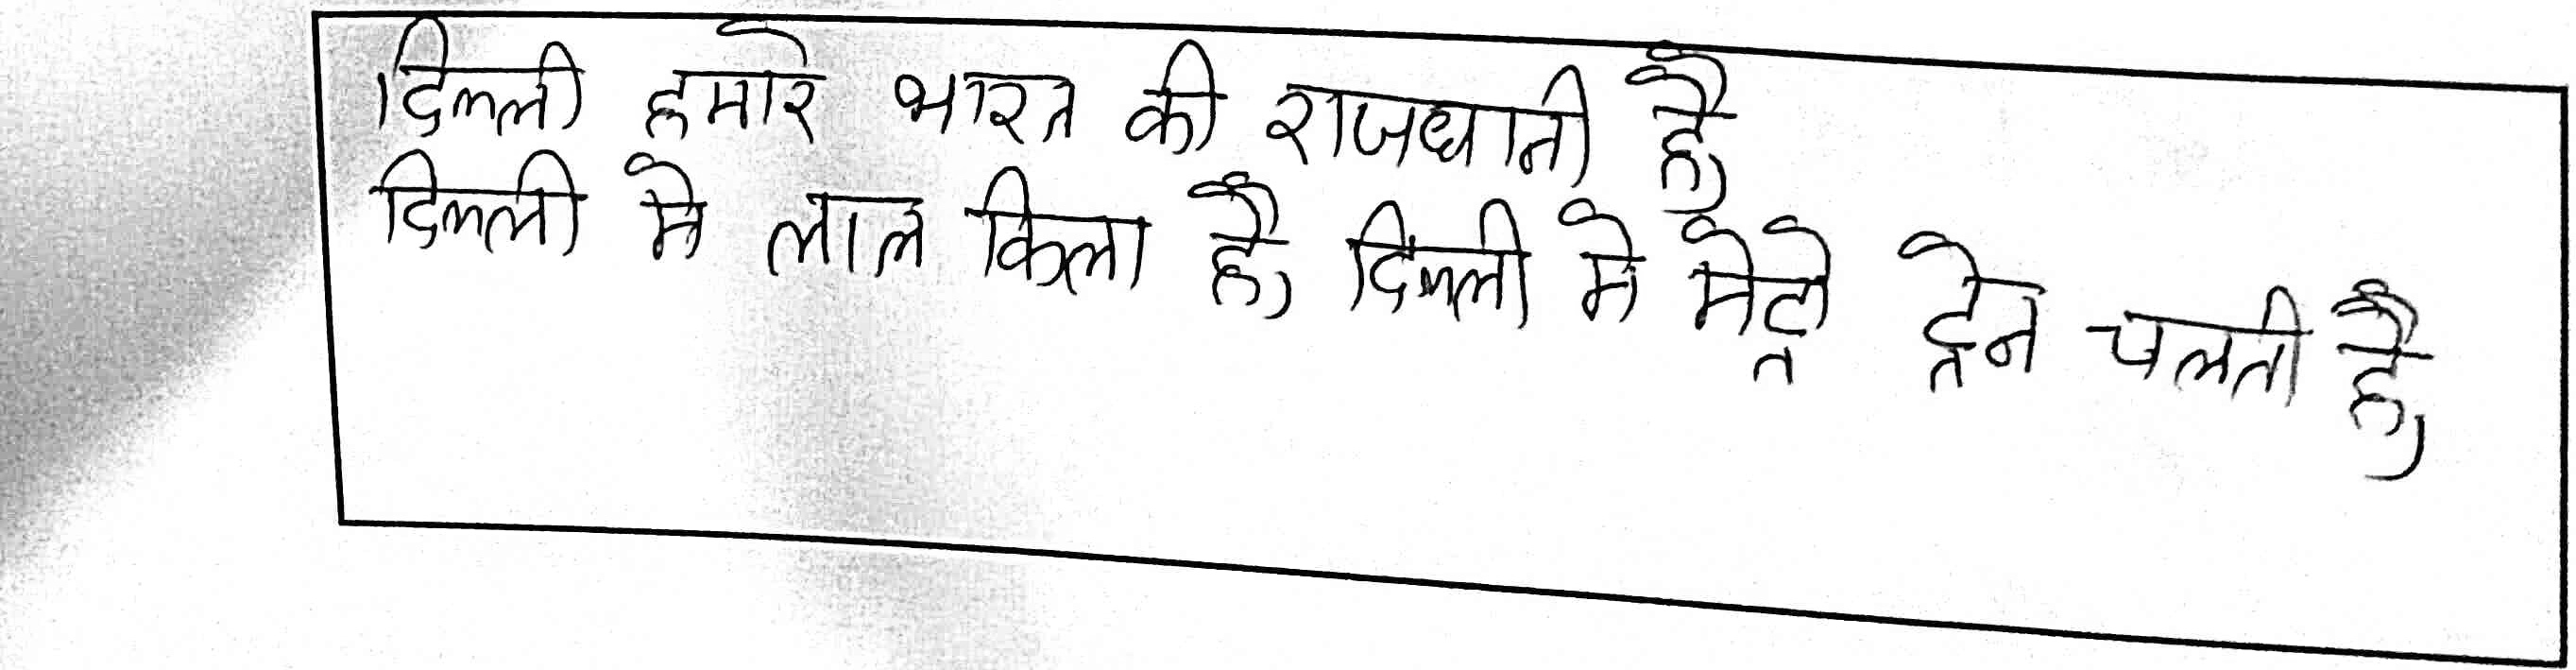 दिल्ली हमारे भारत की राजधानी है,
दिल्ली मे लाल किला है, दिल्ली मे मेट्रो ट्रेन चलती है,